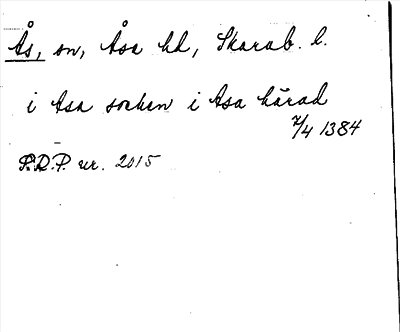 Ås, sn, Åse hd, Skarab. l.
i Asa socken i Asa härad
7/4 1384
R.A.P. nr. 2015